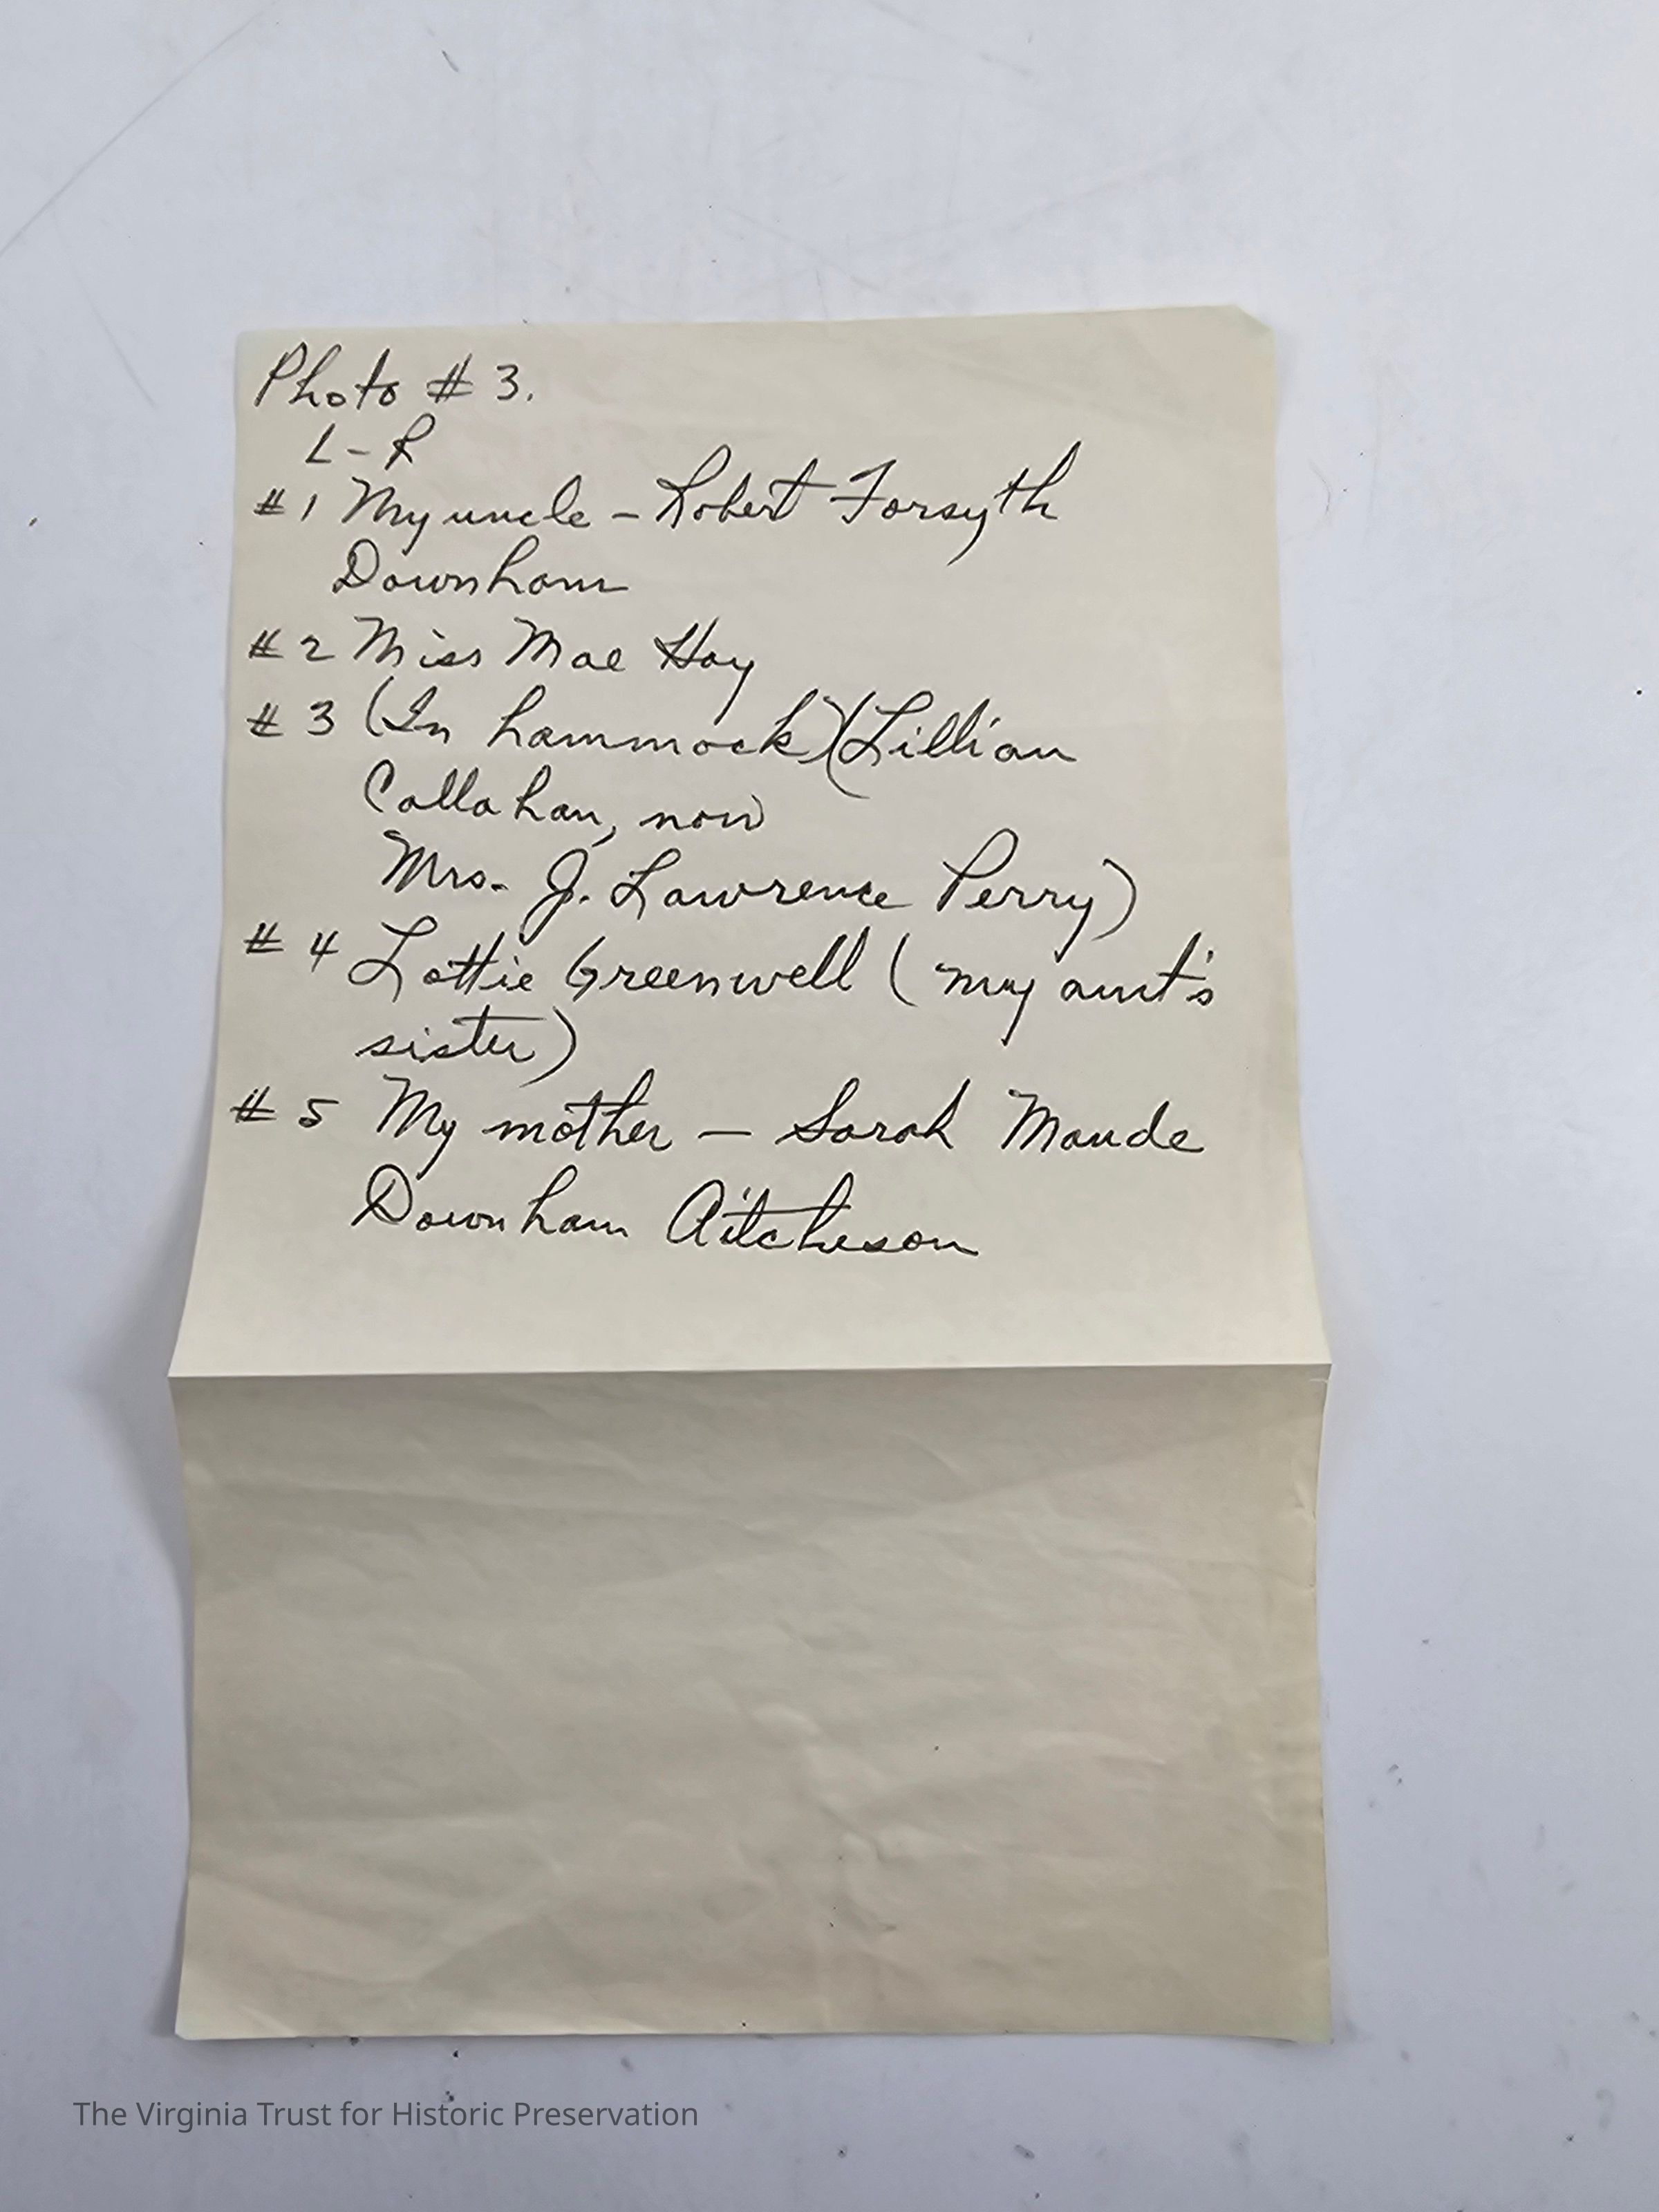 Photo # 3.
L - R
# 1 My uncle - Robert Forsyth
Downham
# 2 Miss Mae Hay
# 3 (In hammock) (Lillian
Callahan, now
Mrs. J. Lawrence Perry)
# 4 Lottie Greenwell ( my aunt's
sister)
# 5 My mother — Sarah Maude
Downham Aitcheson
The Virginia Trust for Historic Preservation